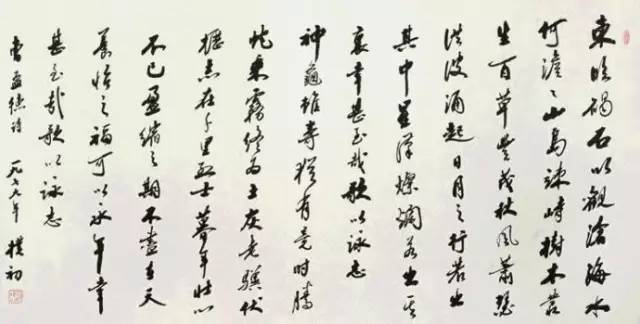 東臨碣石以觀滄海水
何澹〻山島竦峙樹木叢
生百草豐茂秋風蕭瑟
洪波涌起日月之行若出
其中星漢燦爛若出其
裏幸甚至哉歌以詠志
神龜雖壽猶有竟時騰
蛇乘霧終為土灰老驥伏
櫪志在千里烈士暮年壯心
不已盈縮之期不盡在天
養怡之福可以永年幸
甚至哉歌以詠志
曹孟德詩 樸初